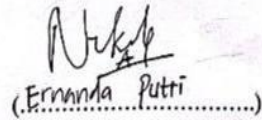 (Ernanda Putri)